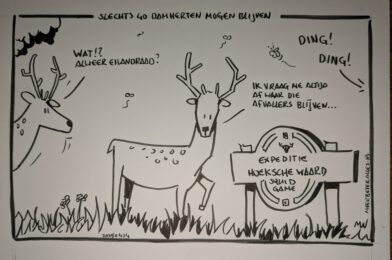 SLECHTS 40 DAMHERTEN MOGEN BLIJVEN
WAT!?
ALWEER EILANDRAAD?
DING!
DING!
IK VRAAG ME ALTIJD
AF WAAR DIE
AFVALLERS BLIJVEN...
EXPEDITIE
HOEKSCHE WAARD
SQUID
GAME
MW